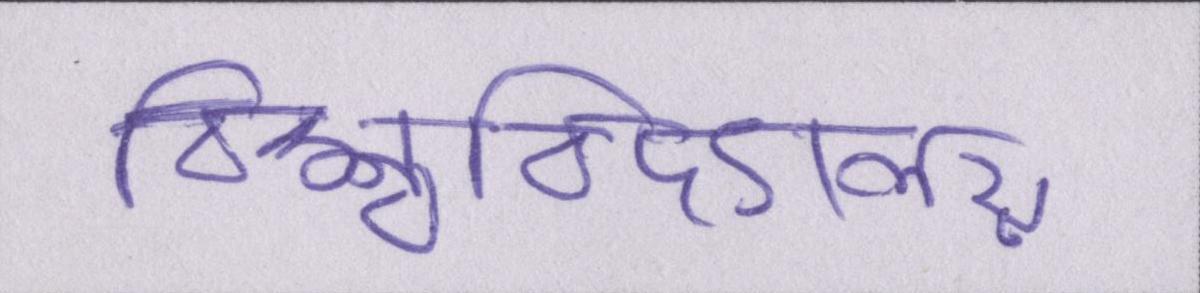 विश्वविद्यालय